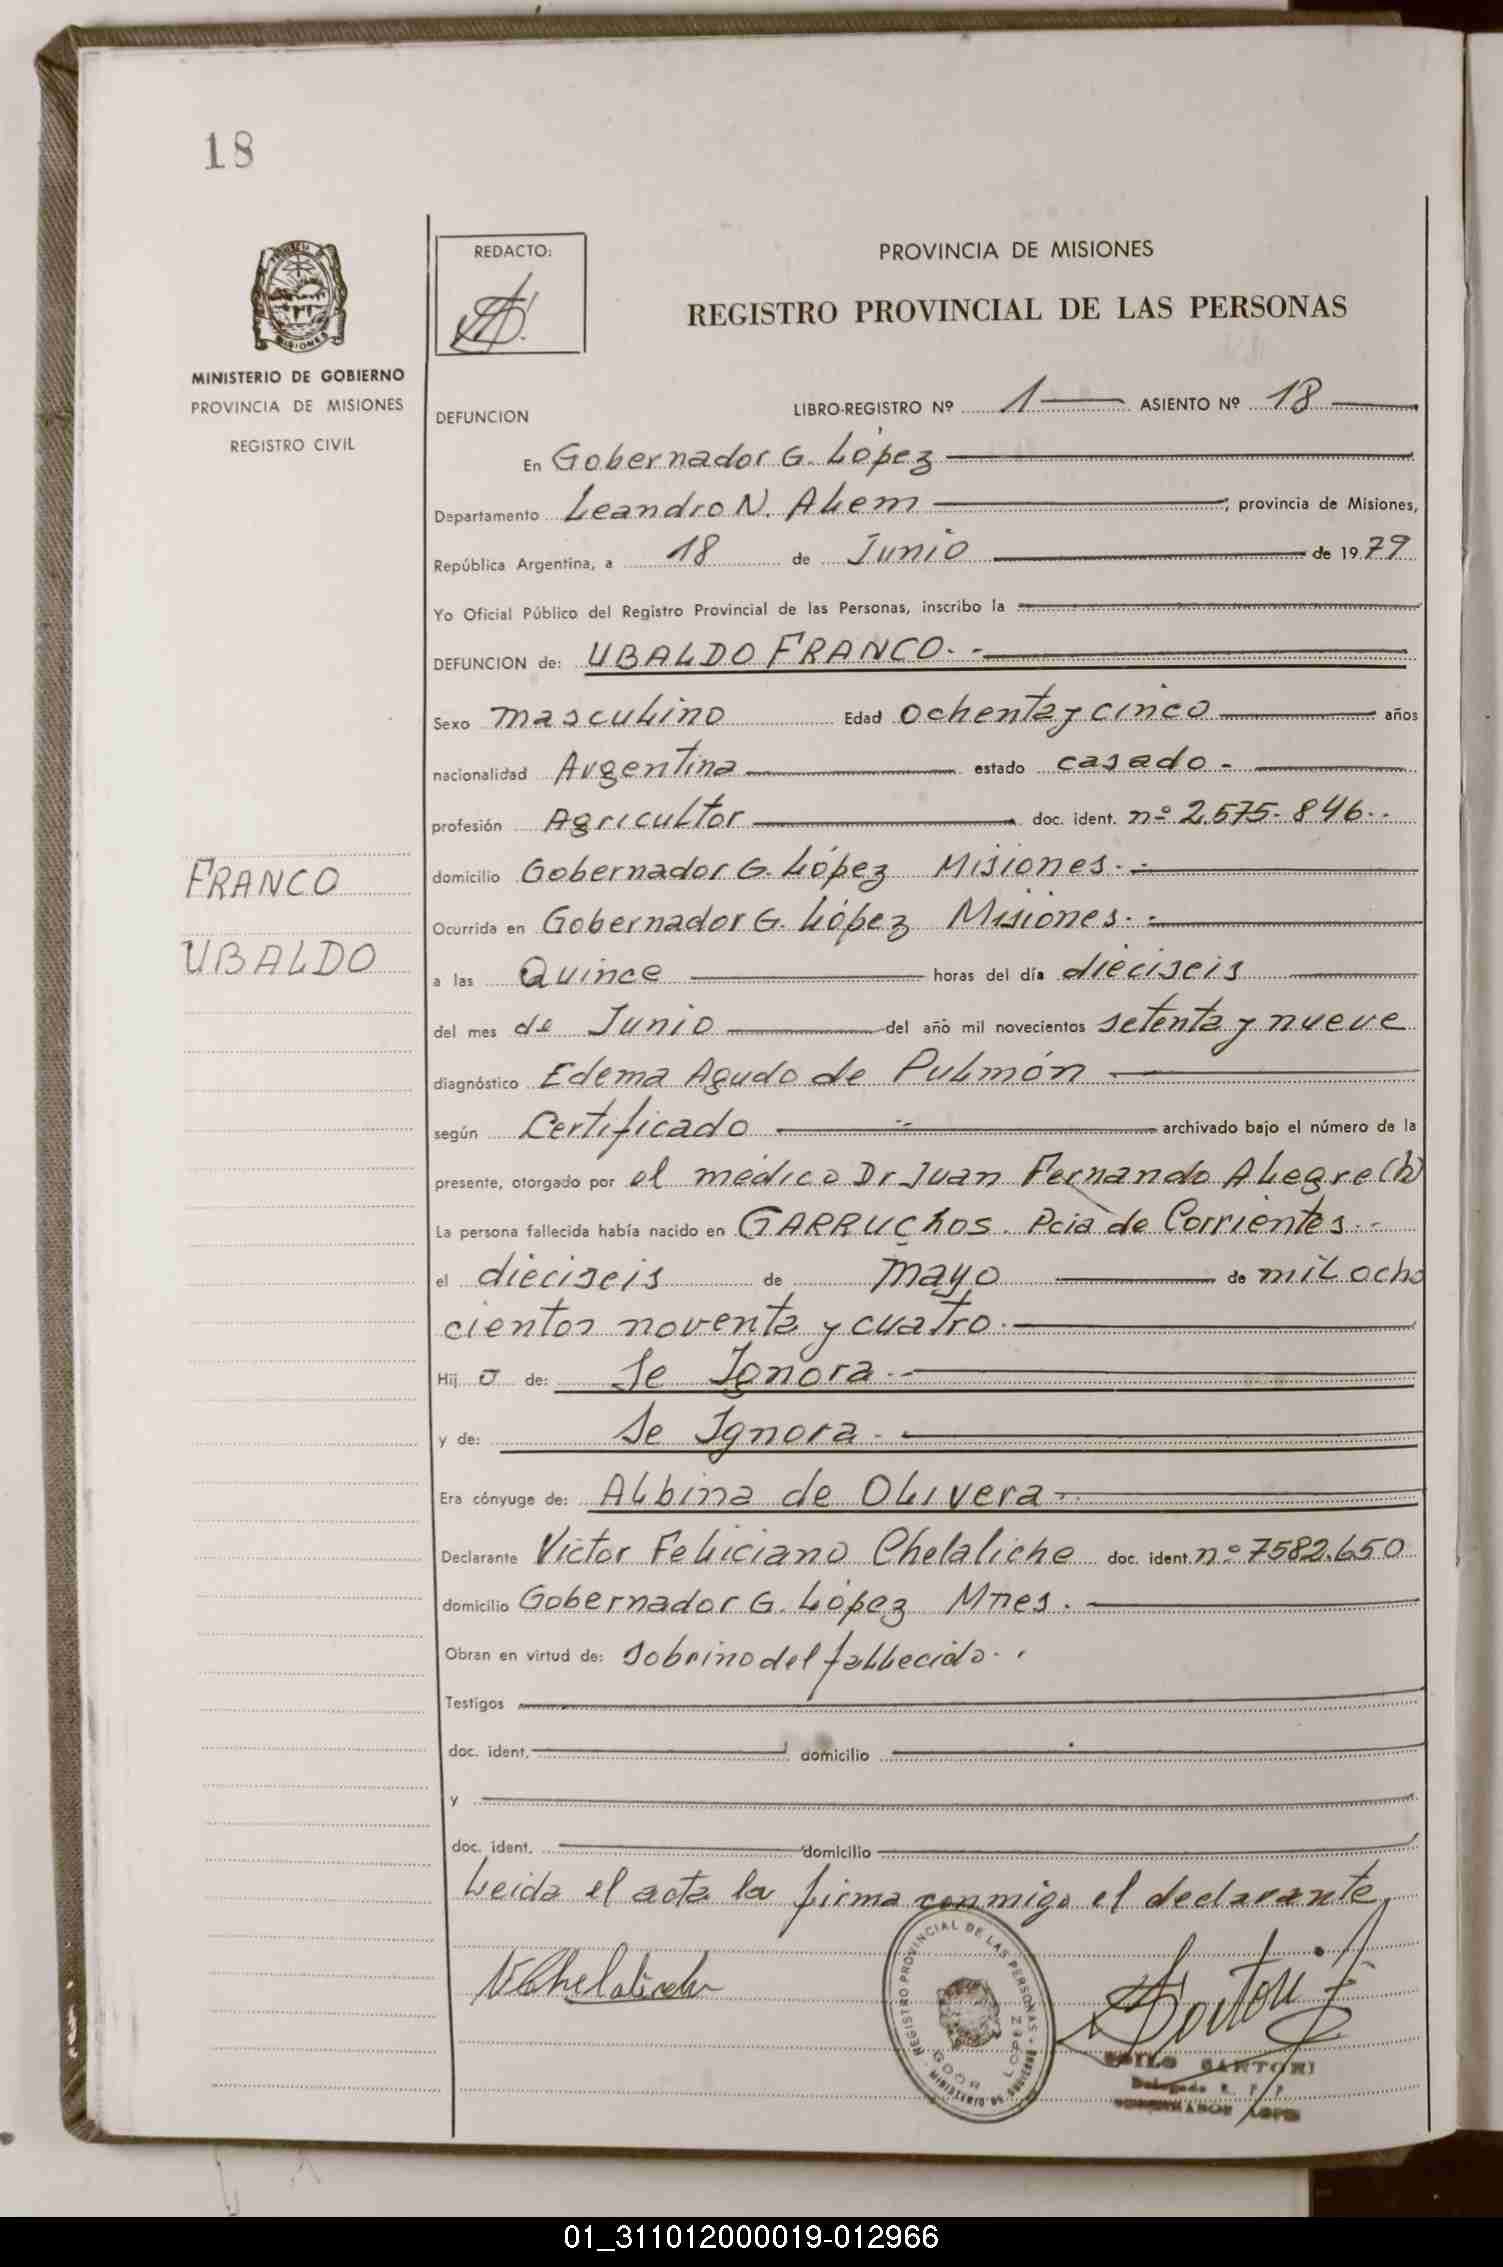 18
MISIONES
MINISTERIO DE GOBIERNO
PROVINCIA DE MISIONES
REGISTRO CIVIL
FRANCO
UBALDO
REDACTO:
PROVINCIA DE MISIONES
REGISTRO PROVINCIAL DE LAS PERSONAS
DEFUNCION LIBRO-REGISTRO Nº 1 ASIENTO Nº 18
En Gobernador G. López
Departamento Leandro N. Alem ; provincia de Misiones,
República Argentina, a 18 de Junio de 1979
Yo Oficial Público del Registro Provincial de las Personas, inscribo la
DEFUNCION de: UBALDO FRANCO.-
Sexo masculino Edad ochenta y cinco años
nacionalidad Argentina estado casado -
profesión Agricultor doc. ident. nº 2.575.846..
domicilio Gobernador G. López Misiones.-
Ocurrida en Gobernador G. López Misiones.-
a las Quince horas del día dieciseis
del mes de Junio del año mil novecientos setenta y nueve
diagnóstico Edema Agudo de Pulmón
según Certificado archivado bajo el número de la
presente, otorgado por el médico Dr Juan Fernando Alegre (h)
La persona fallecida había nacido en GARRUCHOS. Pcia de Corrientes.-
el dieciseis de Mayo de mil ocho
cientos noventa y cuatro.
Hij o de: Se Ignora.-
y de: Se Ignora.
Era cónyuge de: Albina de Olivera
Declarante Victor Feliciano Chelaliche doc. ident. nº 7582.650
domicilio Gobernador G. López Mnes.
Obran en virtud de: sobrino del fallecido..
Testigos
doc. ident. domicilio
y
doc. ident. domicilio
Leida el acta la firma conmigo el declarante,
REGISTRO PROVINCIAL DE LAS PERSONAS
GDOR LOPEZ
SARTORI
01_311012000019-012966